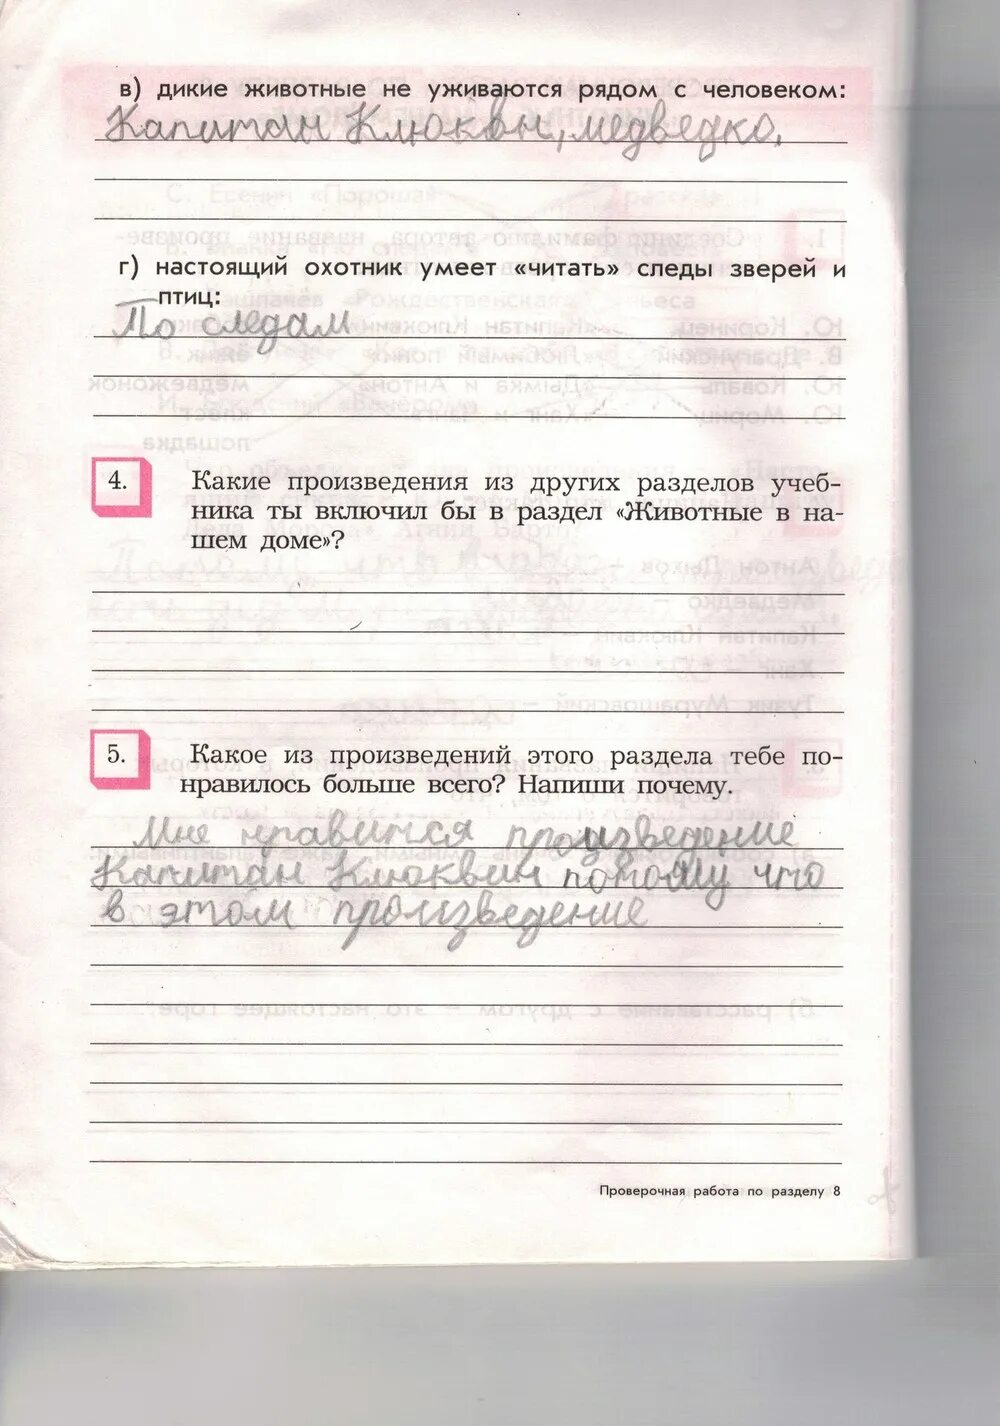 в) дикие животные не уживаются рядом с человеком:
Капитан Клюквин, медведко.
г) настоящий охотник умеет «читать» следы зверей и
птиц:
По следам
4. Какие произведения из других разделов учеб-
ника ты включил бы в раздел «Животные в на-
шем доме»?
5. Какое из произведений этого раздела тебе по-
нравилось больше всего? Напиши почему.
Мне нравится произведение
Капитан Клюквин потому что
в этом произведение
Проверочная работа по разделу 8